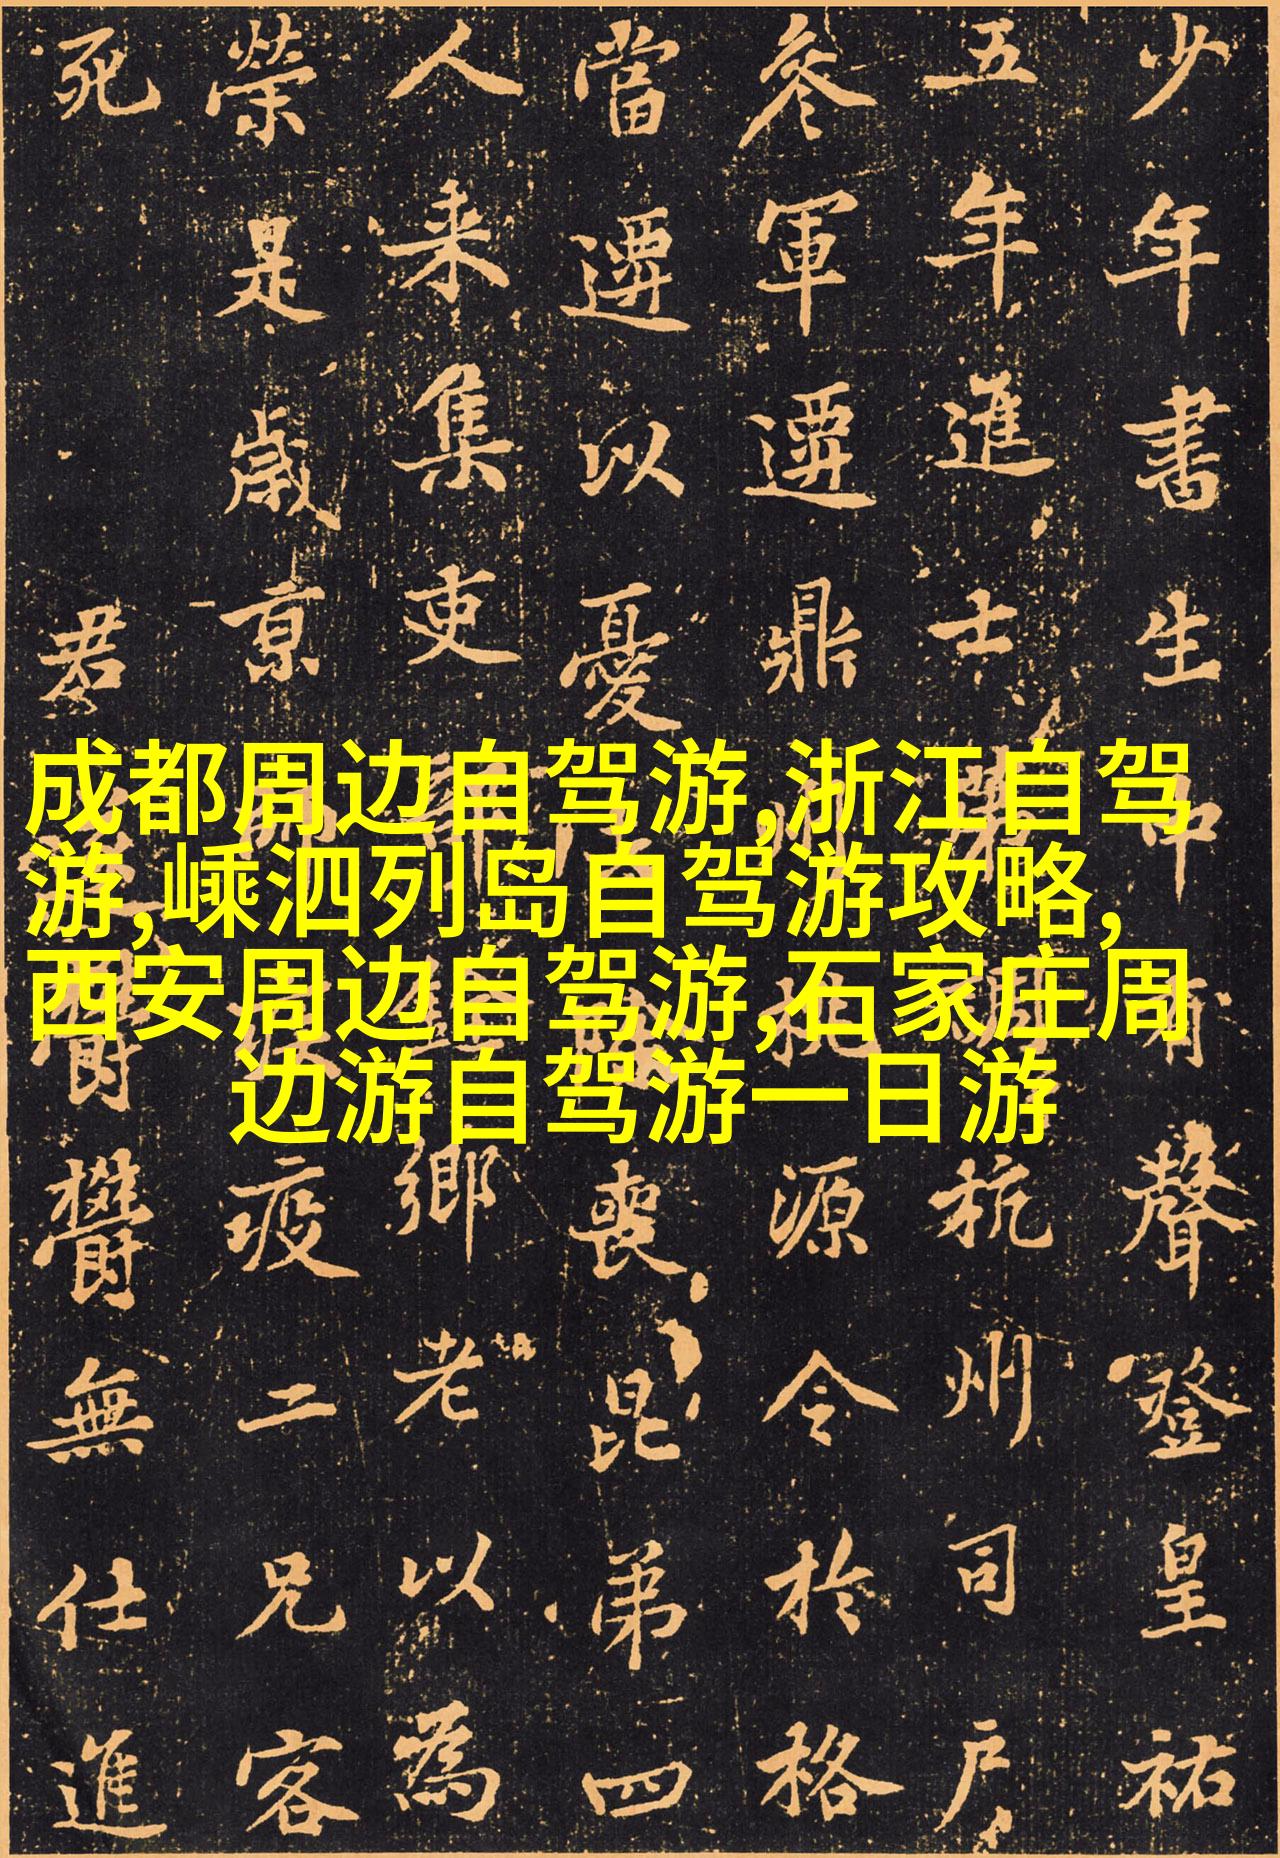 成都周边自驾游,浙江自驾
游,嵊泗列岛自驾游攻略,
西安周边自驾游,石家庄周
边游自驾游一日游
少年書生中有聲登皇祐
五年進士第杭州司戶
參軍遷鼎州桃源令於格
當遷以憂喪昆弟四
人来集吏鄉老以為
榮是歲京師疫二兄客
死 君欝欝無仕進